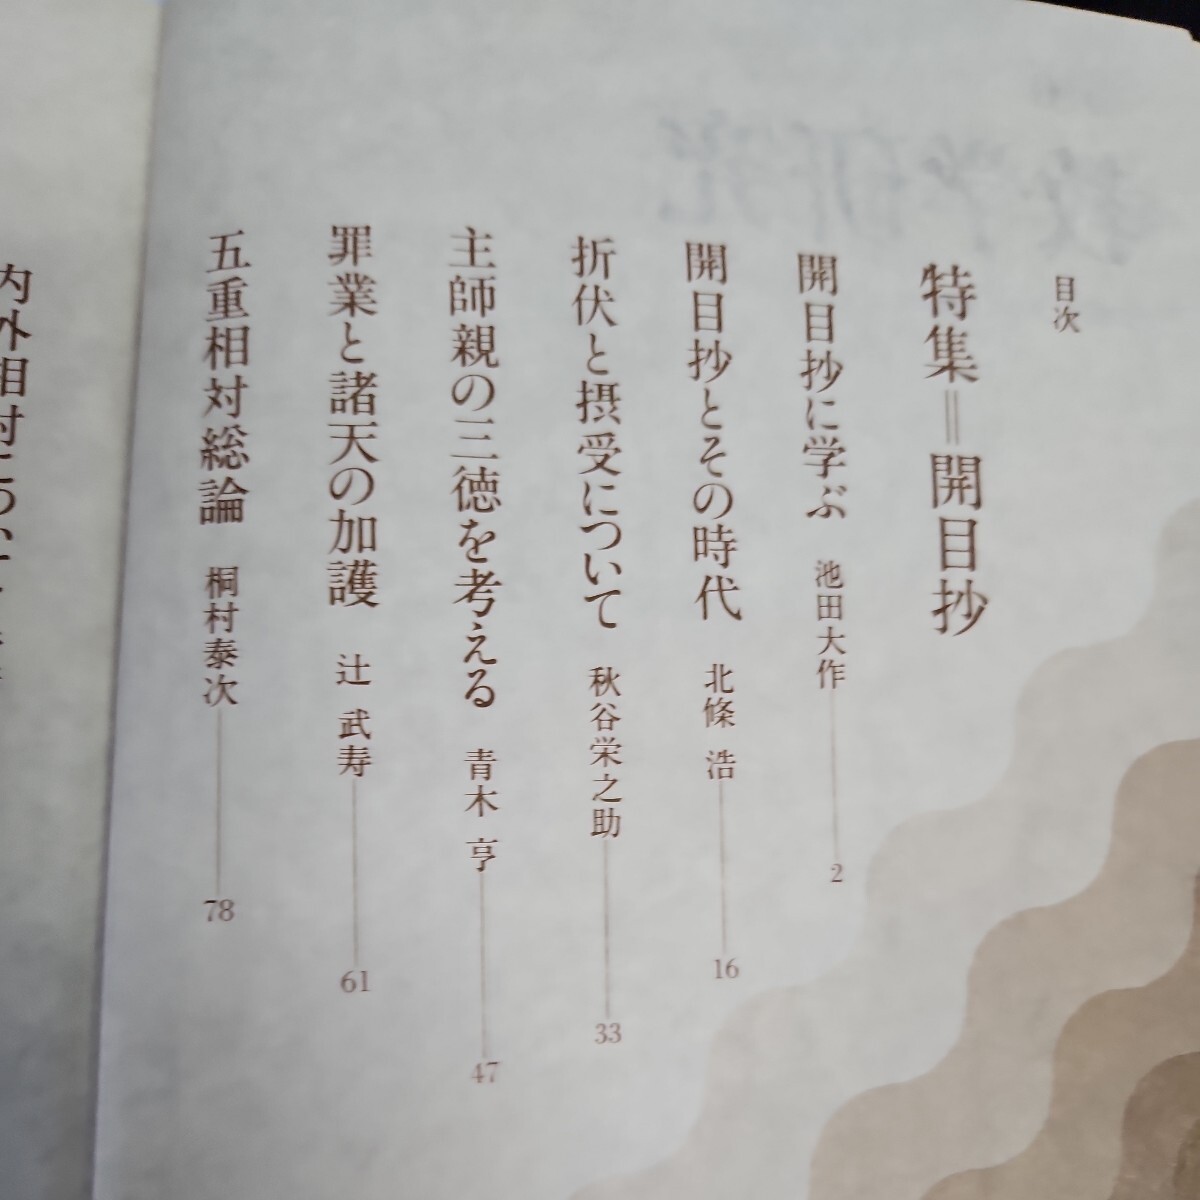 教学研究
目次
特集＝開目抄
開目抄に学ぶ 池田大作 2
開目抄とその時代 北條 浩 16
折伏と摂受について 秋谷栄之助 33
主師親の三徳を考える 青木 亨 47
罪業と諸天の加護 辻 武寿 61
五重相対総論 桐村泰次 78
内外相対